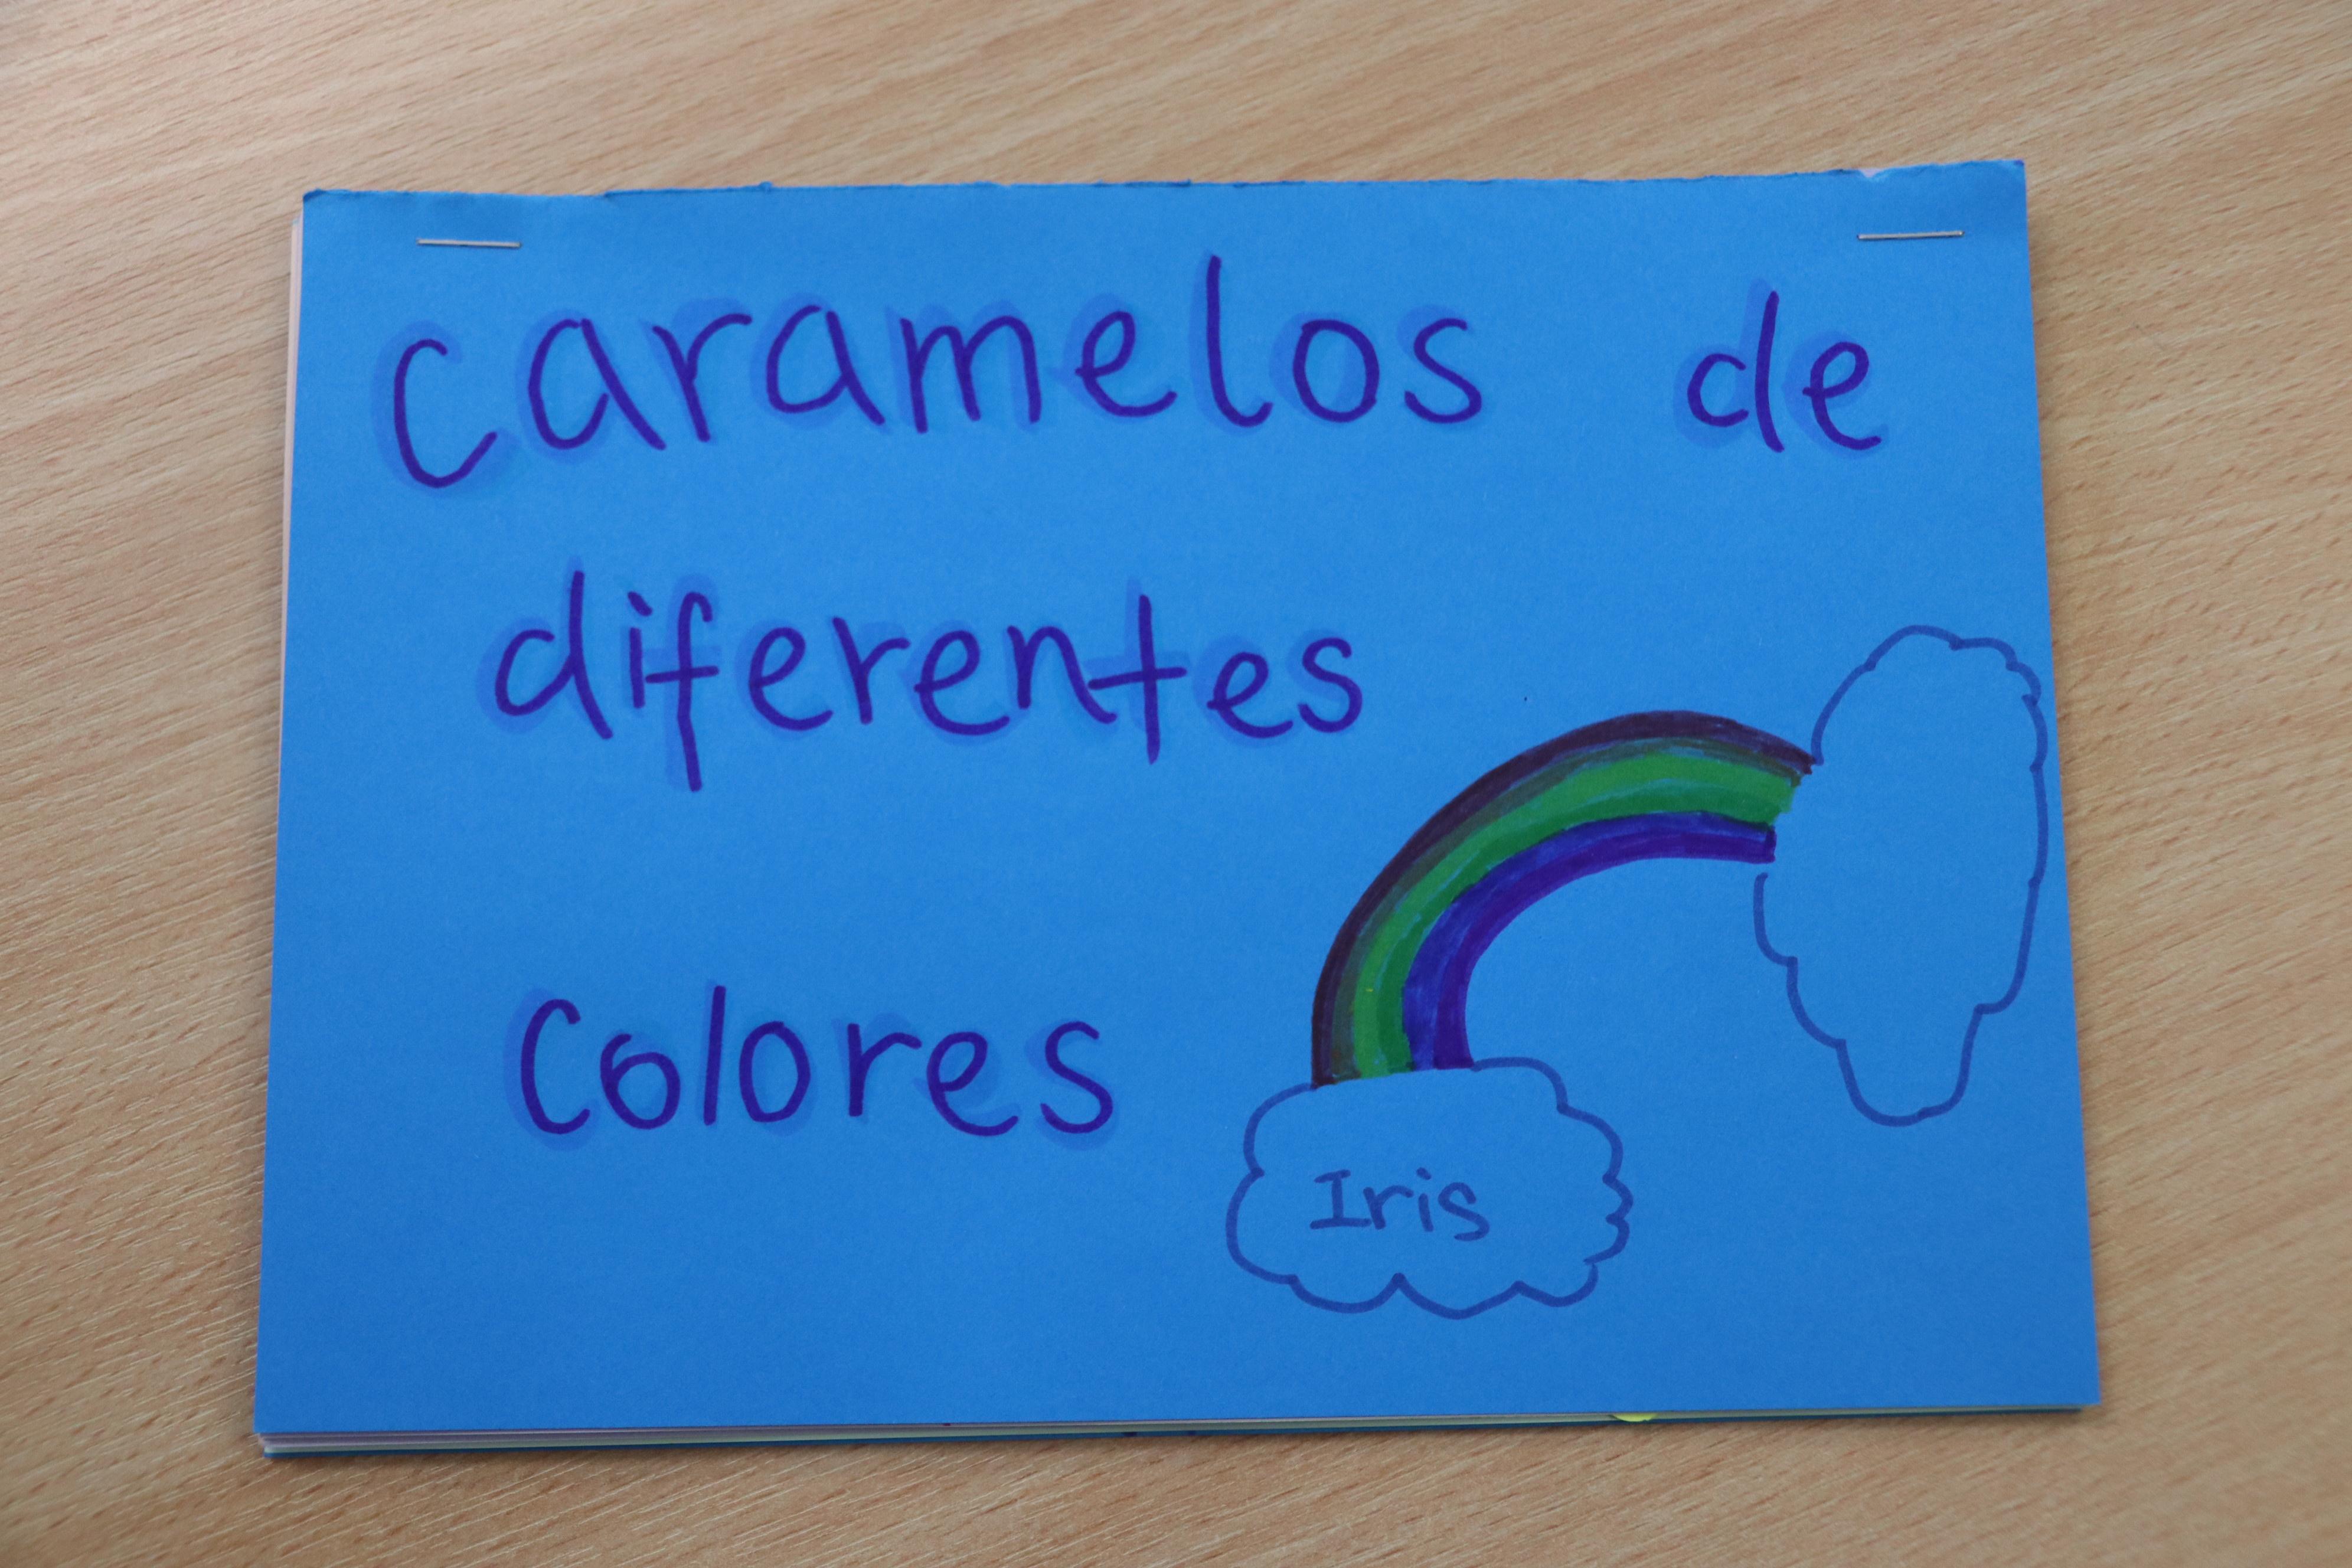 Caramelos de
diferentes
Colores
Iris